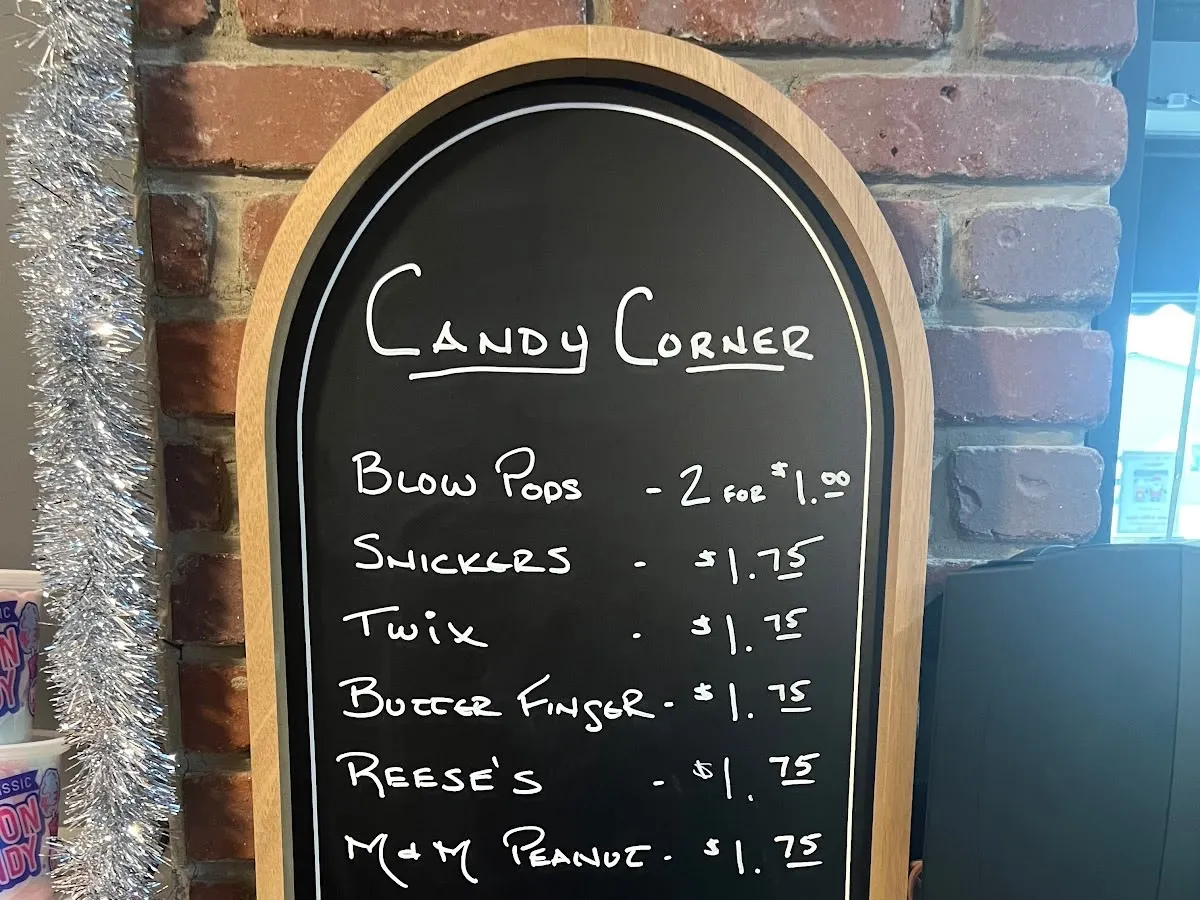 CANDY CORNER
BLOW POPS - 2 FOR $1.00
SNICKERS - $1.75
TWiX - $1.75
BUTTER FINGER - $1.75
REESE'S - $1.75
M & M PEANUT - $1.75